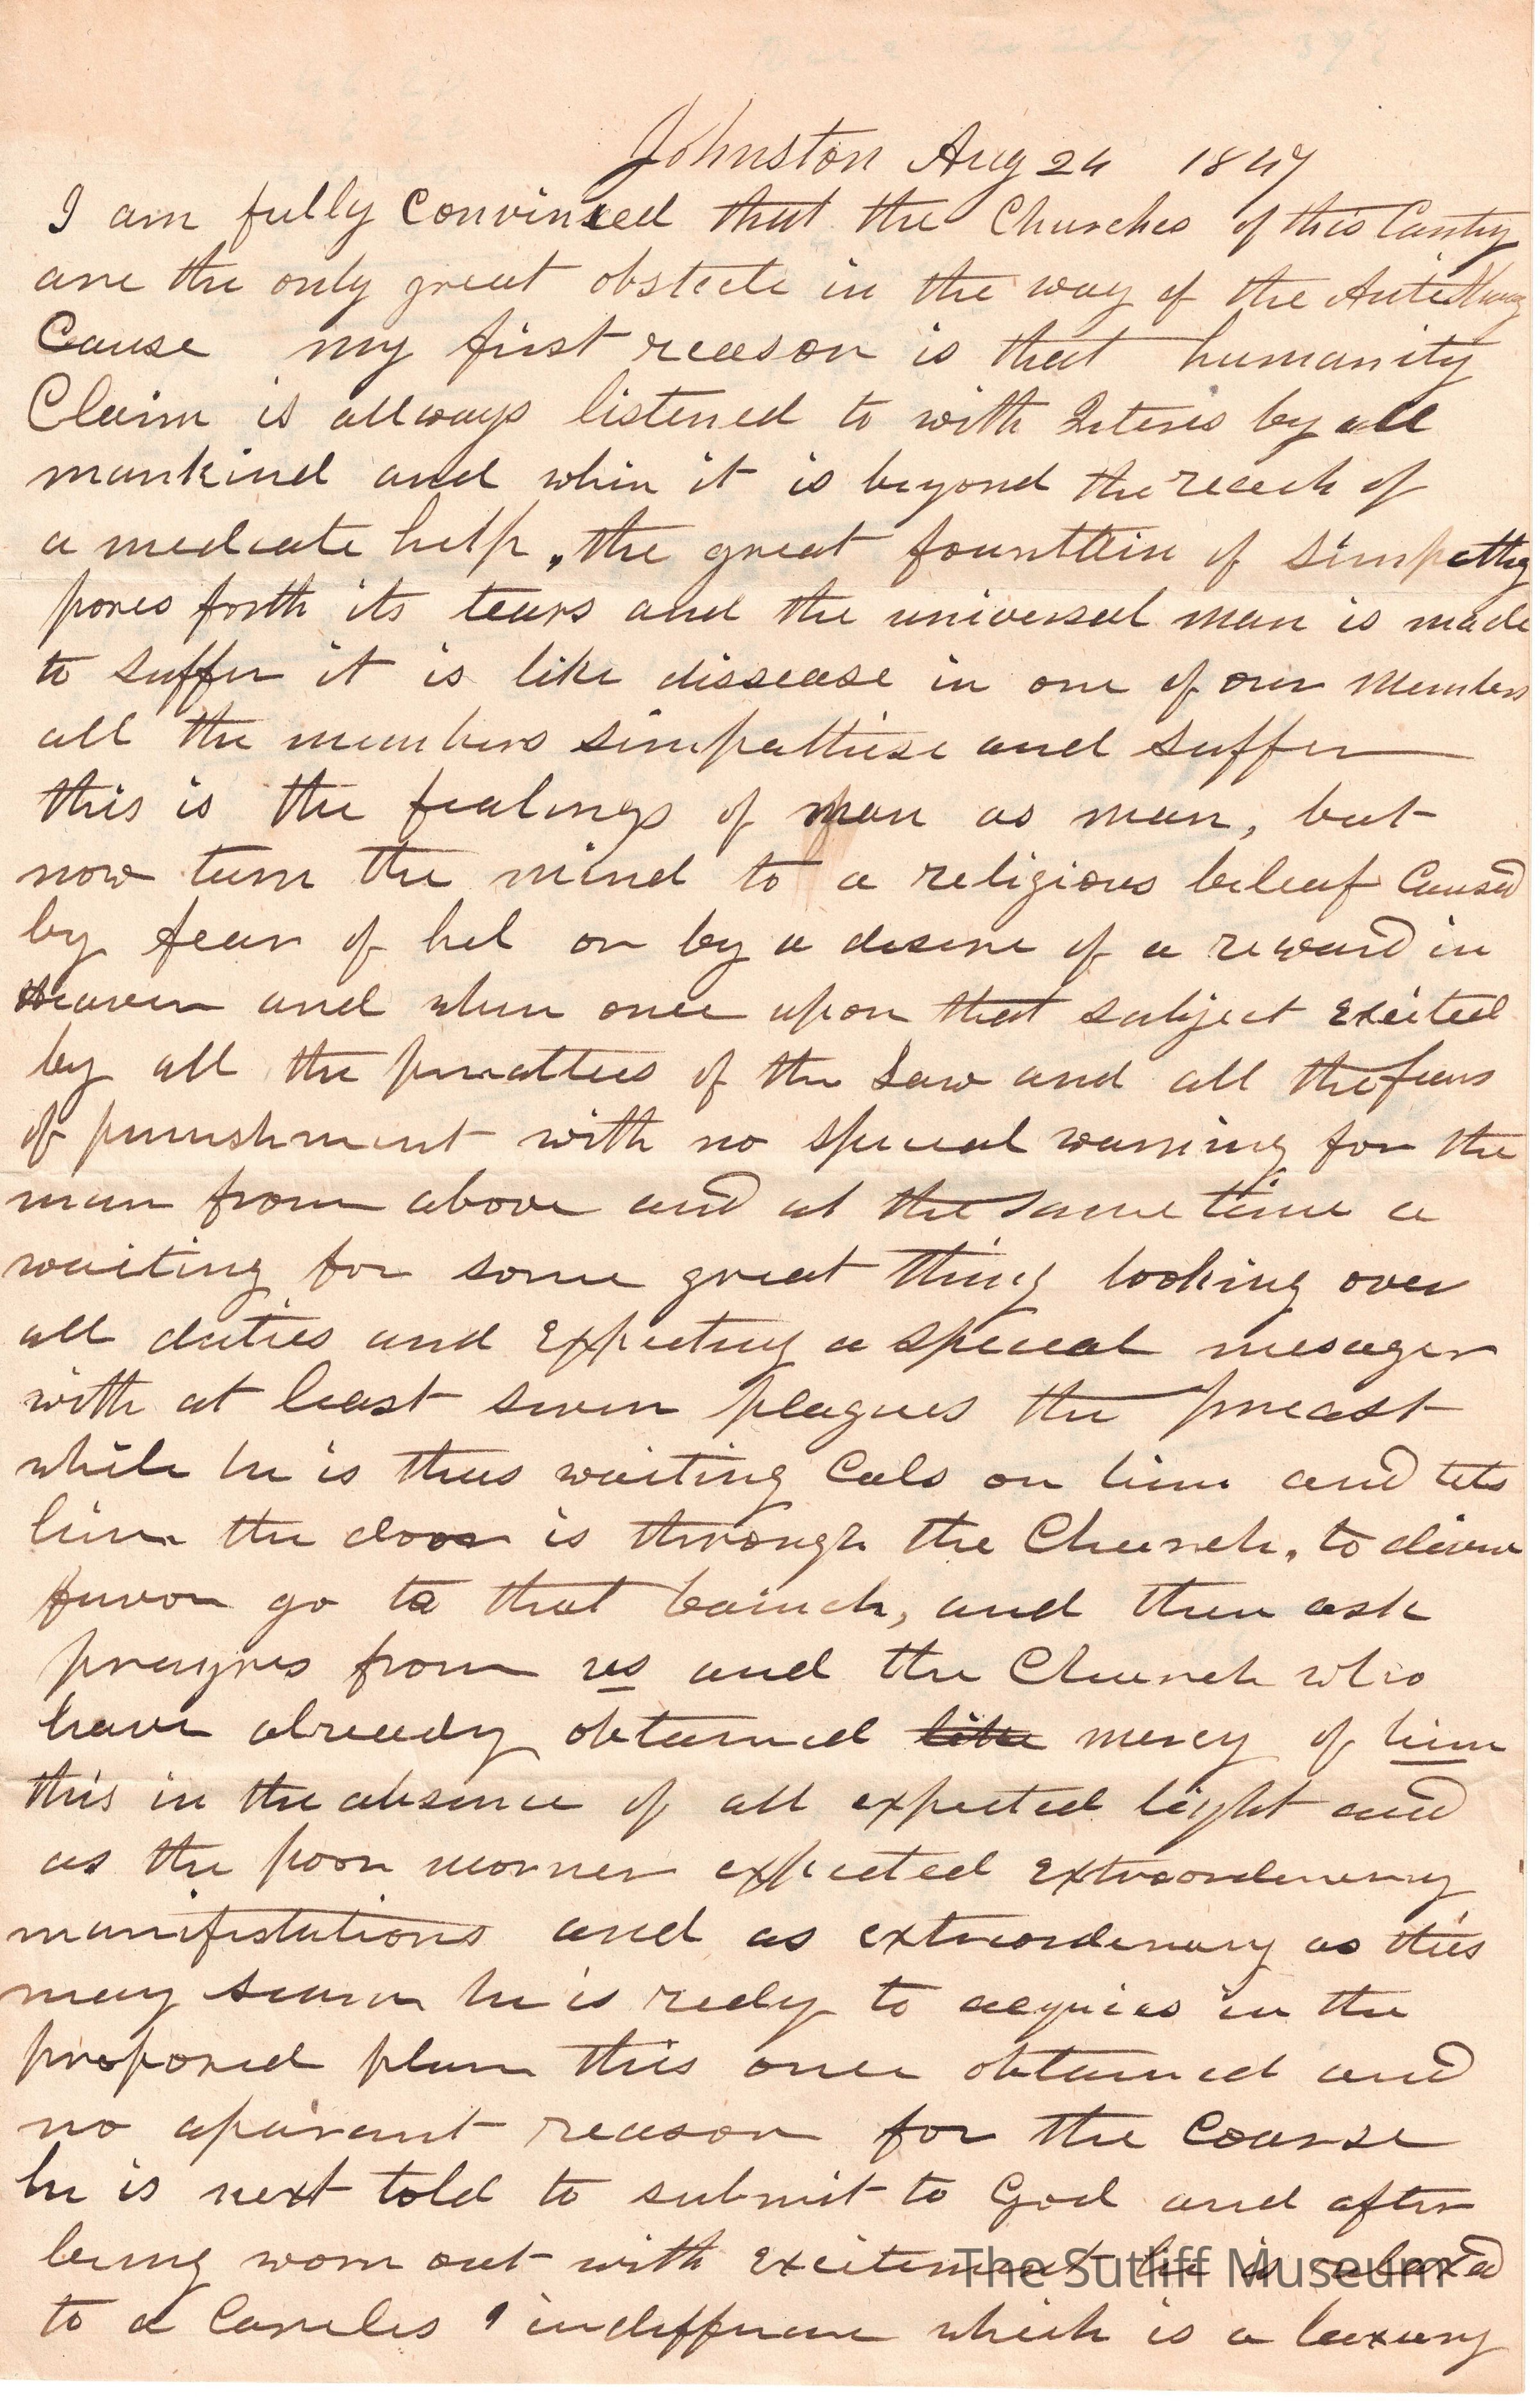 Johnston Aug 24 1847
I am fully convinced that the Churches of this Contry
are the only great obstecle in the way of the AntiSlavery
Cause my first reason is that humanity
Claim is allways listened to with Interes by all
mankind and when it is beyond the reach of
a mediate help, the great founttin of simpathy
pores forth its tears and the universal man is made
to suffer it is like dissease in one of our Members
all the members simpathise and suffer
this is the fealings of man as man, but
now turn the mind to a religious beleaf Caused
by fear of hel or by a desire of a reward in
Heaven and when once upon that subject Excited
by all the penalties of the Law and all the fears
of punnishment with no special warning for the
man from above and at the same time a
waiting for some great thing looking over
all duties and Expecting a special mesager
with at least seven plagues the preast
while he is thus waiting Cals on him and tels
him the door is through the Church, to divine
favor go to that bainch, and then ask
prayres from us and the Church who
have already obtained like mercy of him
this in the absence of all expected light and
as the poor morner expected Extraordenary
manifistations and as extraordenary as this
may seam he is redy to acquies in the
proposed plan this once obtained and
no aparant reason for the Coarse
he is next told to submit to God and after
being worn out with Excitement he is relaxed
to a Careles indifference which is a luxury
The Sutliff Museum